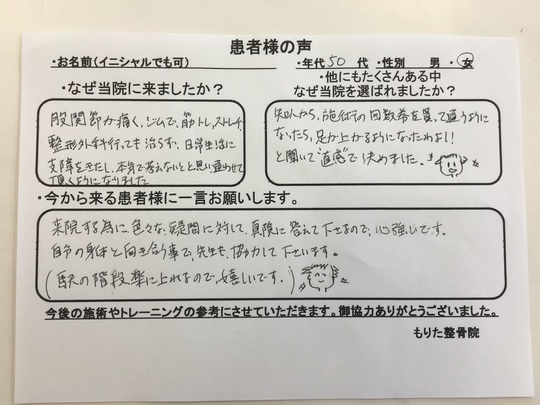 患者様の声
・お名前(イニシャルでも可)
・年代 50 代 ・性別 男 ・ 女
・なぜ当院に来ましたか?
・他にもたくさんある中
なぜ当院を選ばれましたか?
股関節が痛く、ジムで、筋トレ、ストレッチ、
整形外科行っても治らず、日常生活に
支障をきたし、本気で考えないとと思い通わせて
頂くようになりました
知人から、施術の回数券を買って通うように
なったら、足が上がるようになったわよ!!
と聞いて“直感”で決めました。
・今から来る患者様に一言お願いします。
来院する為に色々な疑問に対して、真剣に答えて下さるので、心強いです。
自分の身体と向き合う事で、先生も、協力して下さいます。
(駅の階段楽に上れるので嬉しいです。)
今後の施術やトレーニングの参考にさせていただきます。御協力ありがとうございました。
もりた整骨院